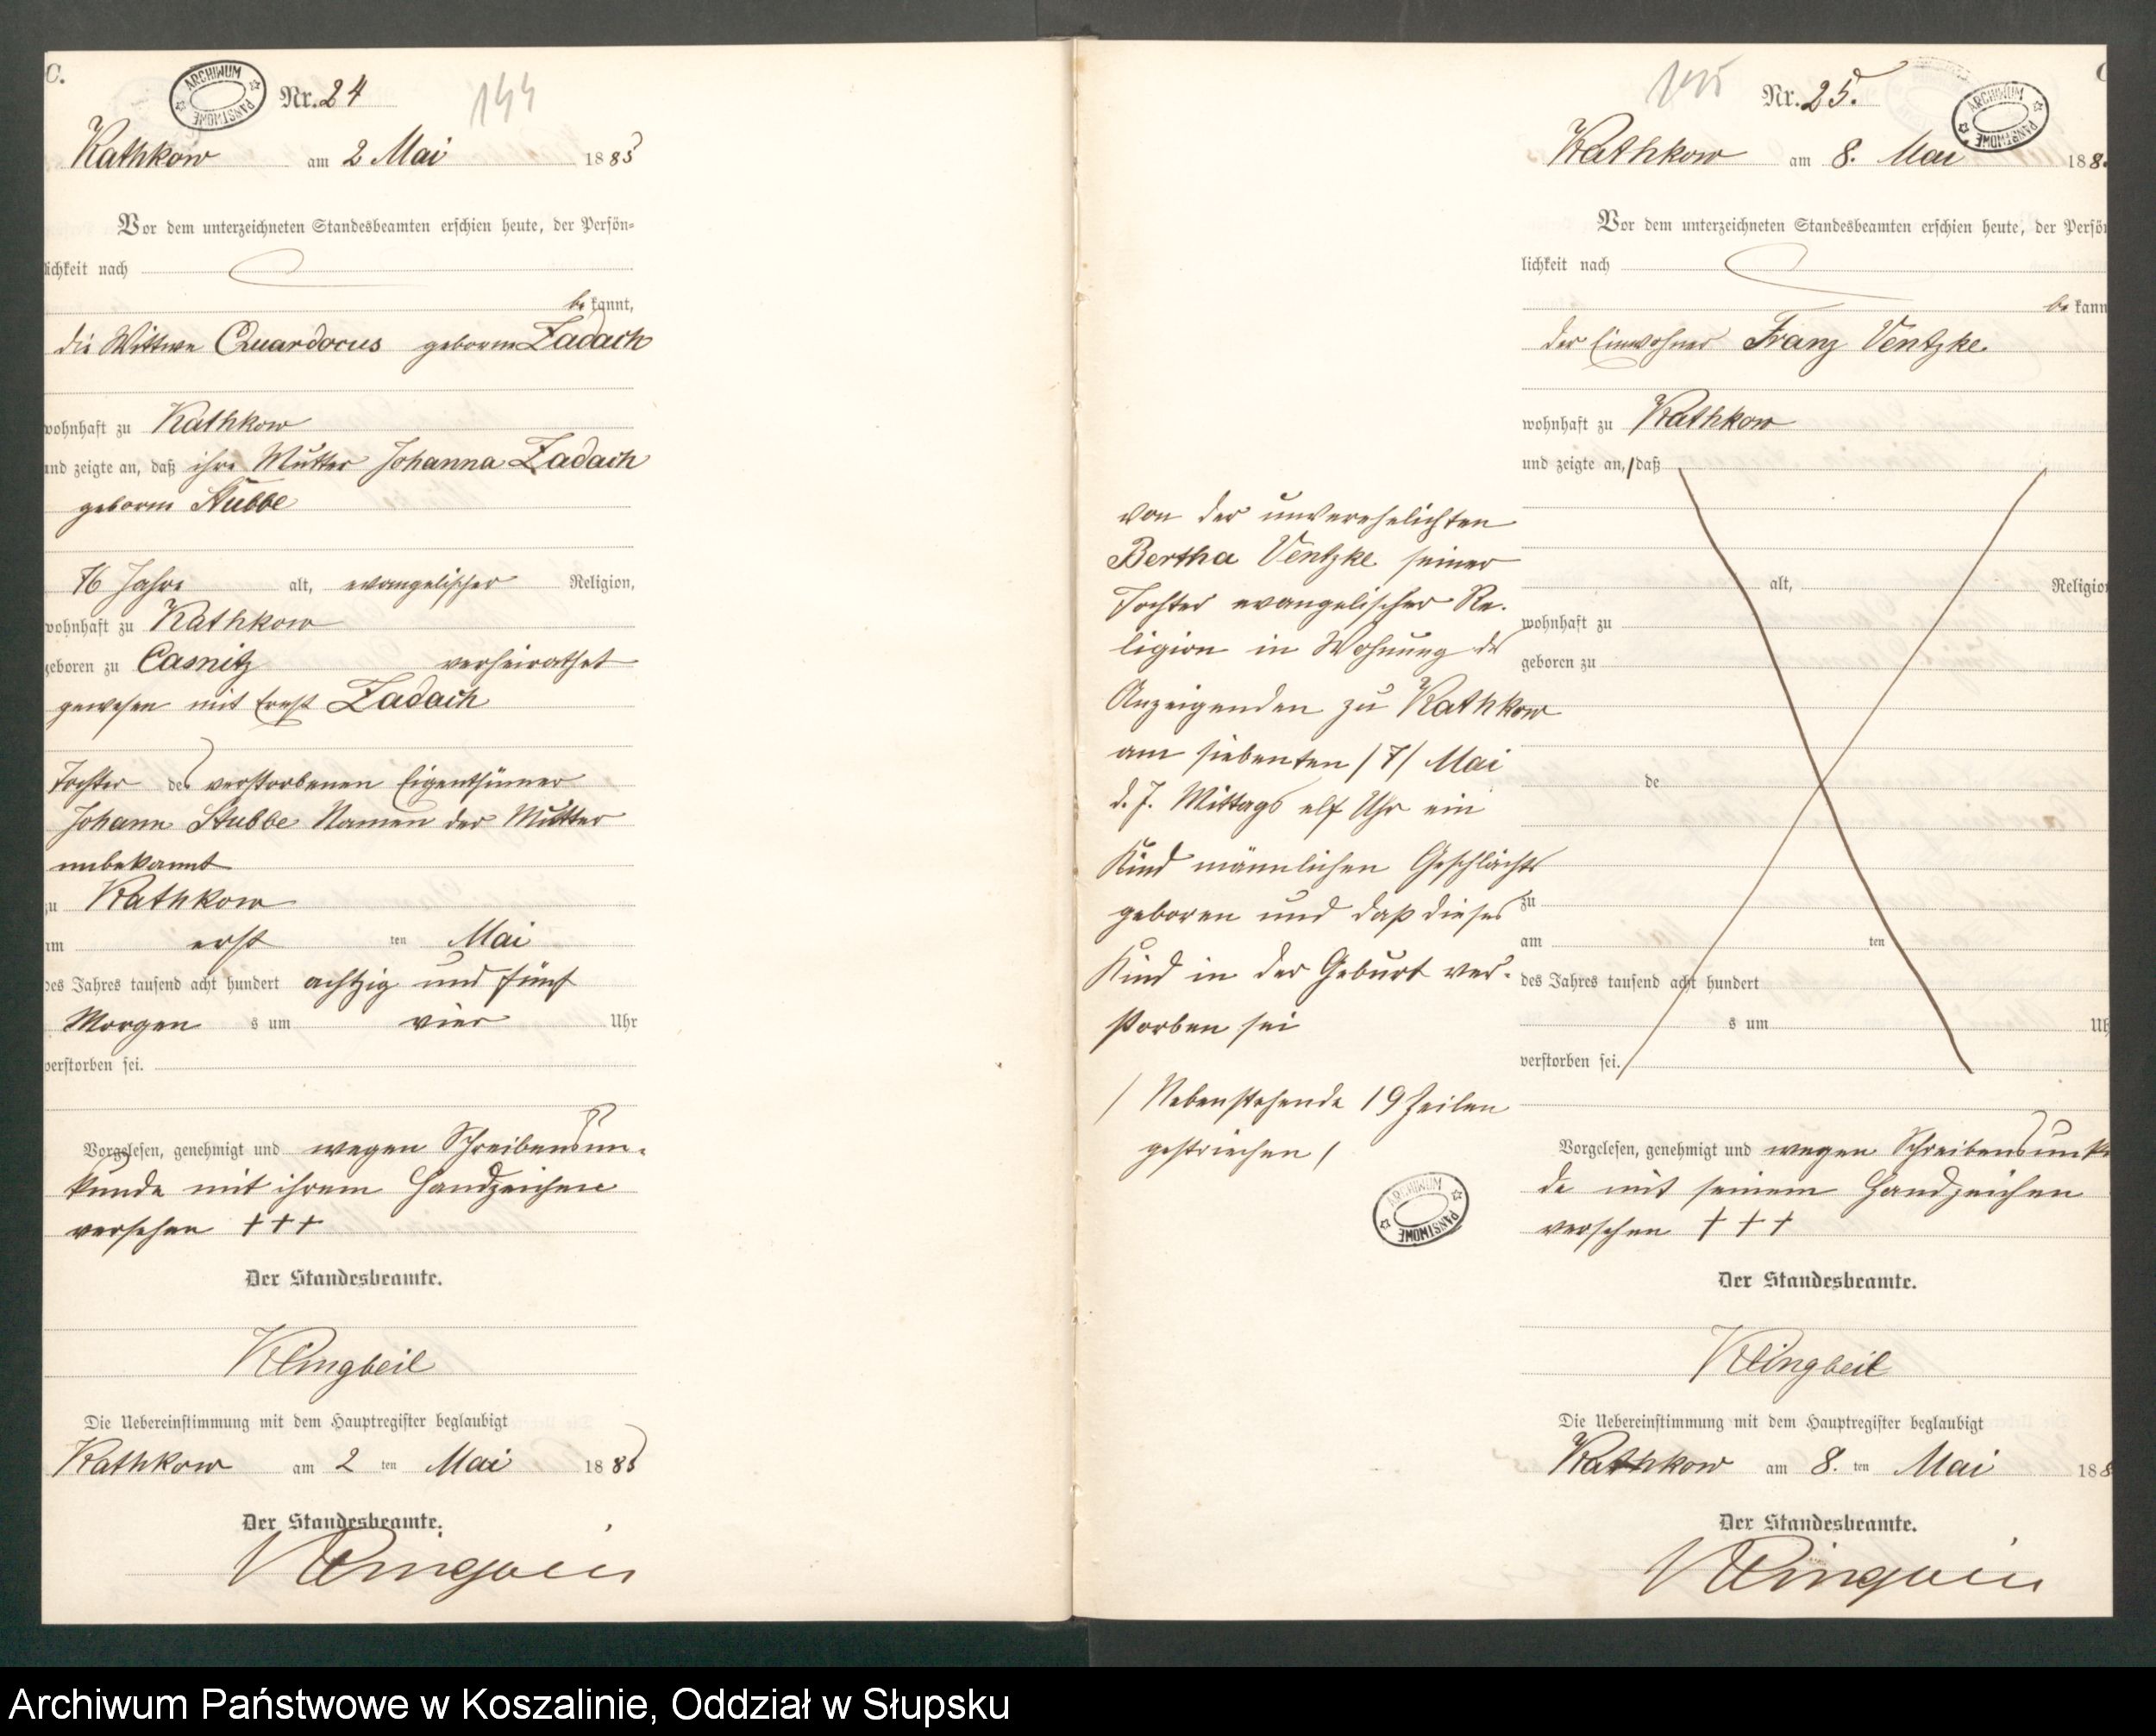 C.
ARCHIWUM PAŃSTWOWE
Nr. 24
144
Rathkow am 2 Mai 1885
Vor dem unterzeichneten Standesbeamten erschien heute, der Persön-
lichkeit nach
be kannt,
die Wittwe Quardocus geborene Zadach
wohnhaft zu Rathkow
und zeigte an, daß ihre Mutter Johanna Zadach
geborene Stubbe
76 Jahre alt, evangelischer Religion,
wohnhaft zu Rathkow
geboren zu Casnitz verheirathet
gewesen mit Ernst Zadach
Tochter des verstorbenen Eigenthümer
Johann Stubbe Namen der Mutter
unbekannt
zu Rathkow
am erst ten Mai
des Jahres tausend acht hundert achtzig und fünf
Morgen s um vier Uhr
verstorben sei.
Vorgelesen, genehmigt und wegen Schreibensun-
kunde mit ihrem Handzeichen
versehen +++
Der Standesbeamte.
Klingbeil
Die Uebereinstimmung mit dem Hauptregister beglaubigt
Rathkow am 2 ten Mai 1885
Der Standesbeamte.
Klingbeil
145
Nr. 25.
ARCHIWUM PAŃSTWOWE
Rathkow am 8. Mai 188
Vor dem unterzeichneten Standesbeamten erschien heute, der Persö
lichkeit nach
be kann
der Einwohner Franz Ventzke
wohnhaft zu Rathkow
und zeigte an, / daß
von der unverehelichten
Bertha Ventzke seiner
Tochter evangelischer Re-
ligion in Wohnung des
Anzeigenden zu Rathkow
am siebenten /7/ Mai
d. J. Mittags elf Uhr ein
Kind männlichen Geschlechts
geboren und daß dieses
Kind in der Geburt ver-
storben sei
/ Nebenstehende 19 Zeilen
gestrichen /
ARCHIWUM PAŃSTWOWE
alt, Religion
wohnhaft zu
geboren zu
de
zu
am ten
des Jahres tausend acht hundert
s um Uh
verstorben sei.
Vorgelesen, genehmigt und wegen Schreibensunk
de mit seinem Handzeichen
versehen +++
Der Standesbeamte.
Klingbeil
Die Uebereinstimmung mit dem Hauptregister beglaubigt
Rathkow am 8. ten Mai 188
Der Standesbeamte.
Klingbeil
Archiwum Państwowe w Koszalinie, Oddział w Słupsku